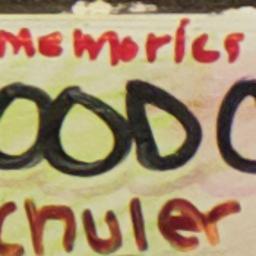 memories
OOD C
chuler